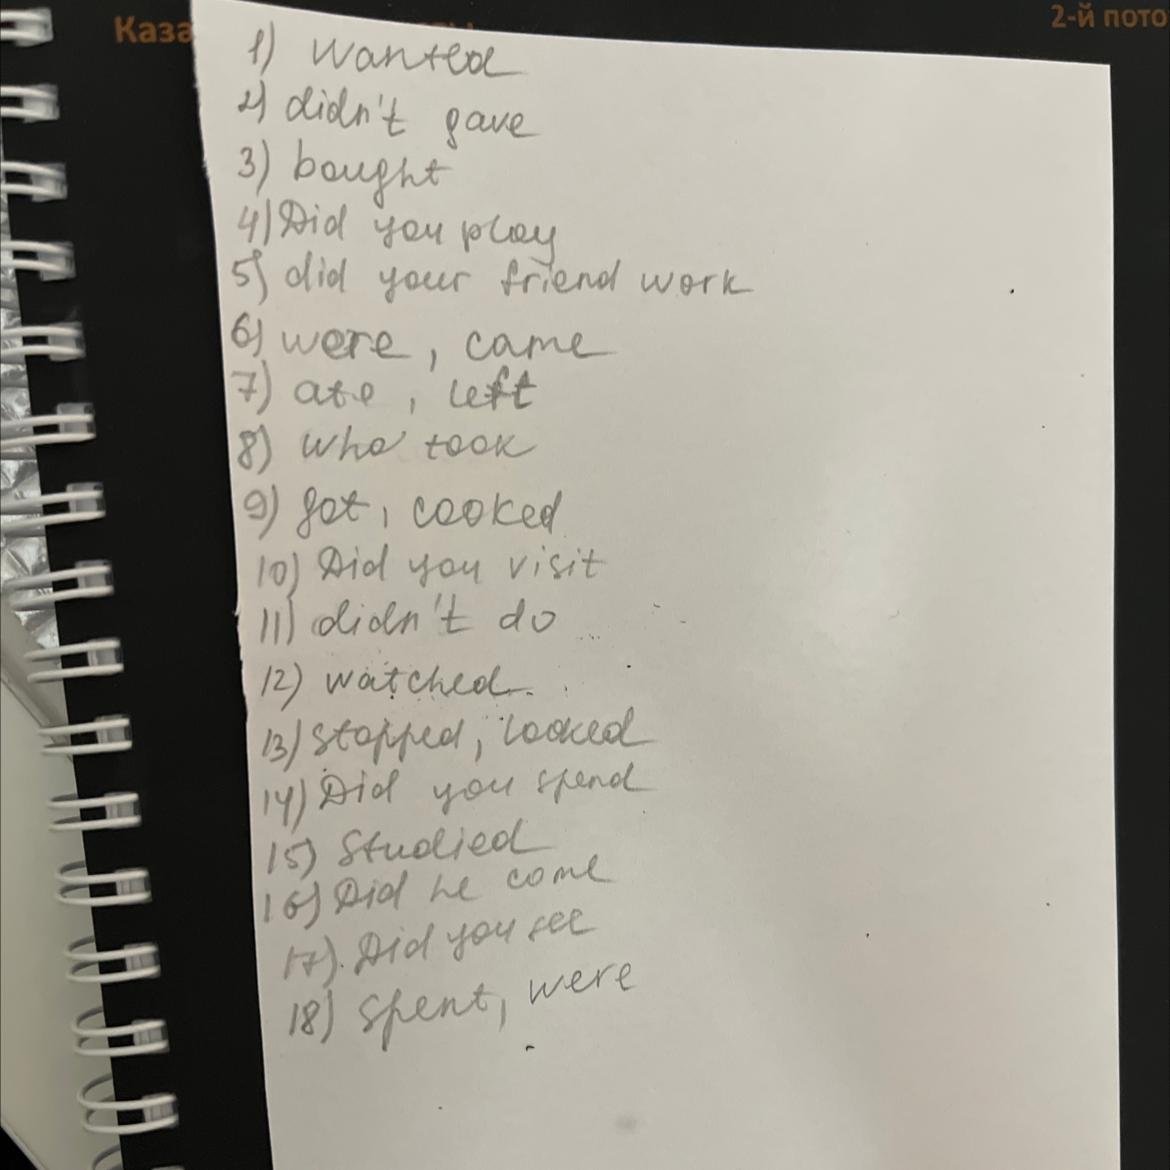 Каза
2-й пото
1) wanted
2) didn't gave
3) bought
4) Did you play
5) did your friend work
6) were, came
7) ate, left
8) who took
9) got, cooked
10) Did you visit
11) didn't do
12) watched
13) stopped, looked
14) Did you spend
15) Studied
16) Did he come
17) Did you see
18) spent, were